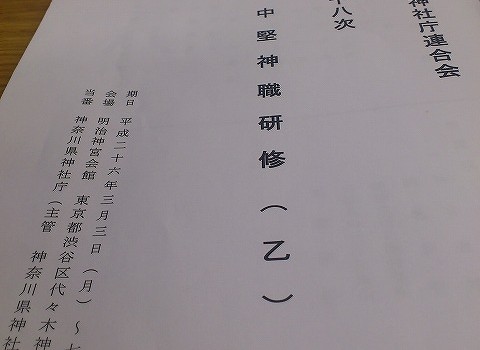 神社庁連合会
十八次
中堅神職研修（乙）
期日 平成二十六年三月三日（月）～七
会場 明治神宮会館 東京都渋谷区代々木神
当番 神奈川県神社庁（主管 神奈川県神社